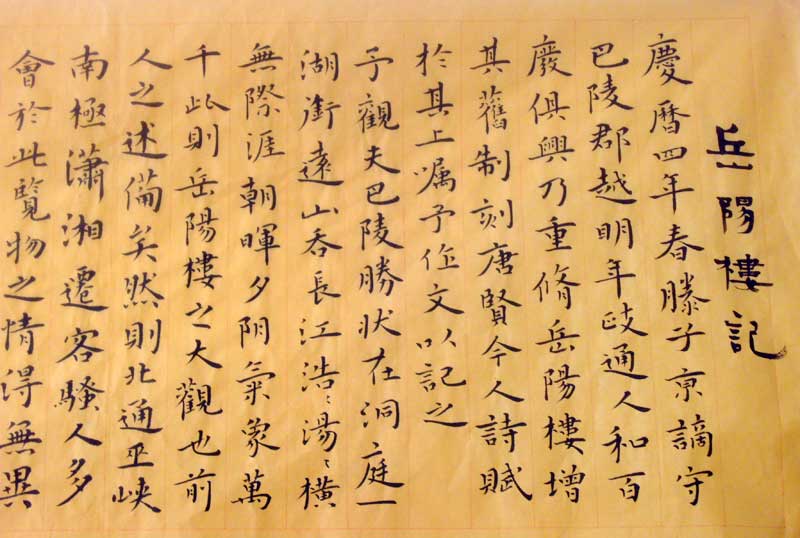 岳陽樓記
慶曆四年春滕子京謫守
巴陵郡越明年政通人和百
廢俱興乃重脩岳陽樓增
其舊制刻唐賢今人詩賦
於其上嘱予作文以記之
予觀夫巴陵勝狀在洞庭一
湖銜遠山吞長江浩〻湯〻橫
無際涯朝暉夕陰氣象萬
千此則岳陽樓之大觀也前
人之述備矣然則北通巫峽
南極瀟湘遷客騷人多
會於此覽物之情得無異